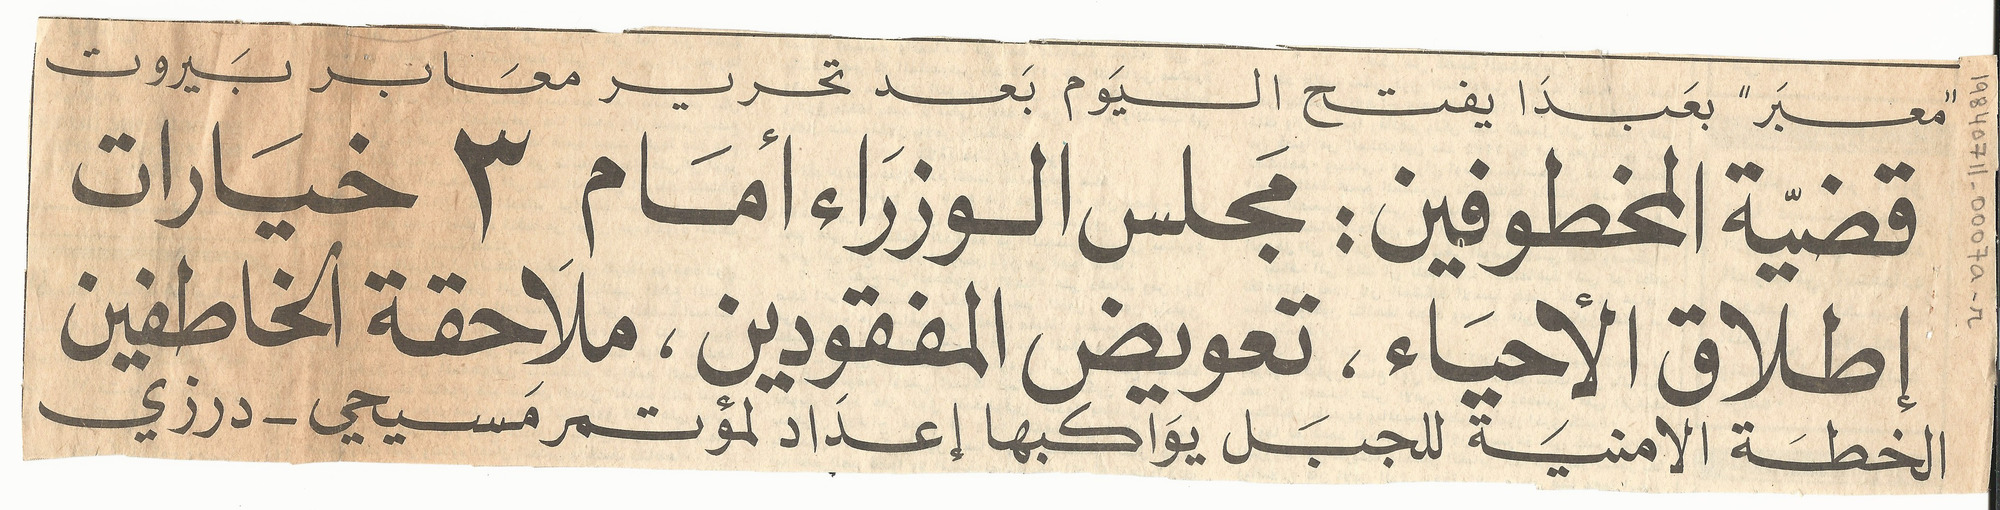 "معبَر" بعَبدَا يفتح اليَوم بَعد تحرير معَابر بَيروت
قضيّة المخطوفين: مَجلس الوزرَاء أمَام ٣ خيَارات
إطلاق الأحيَاء، تعويض المفقودين، ملَاحقة الخاطفين
الخطَة الامنيَة للجبَل يوَاكبها إعدَاد لمؤتمر مَسيحي - درزي
19840711-00070-n